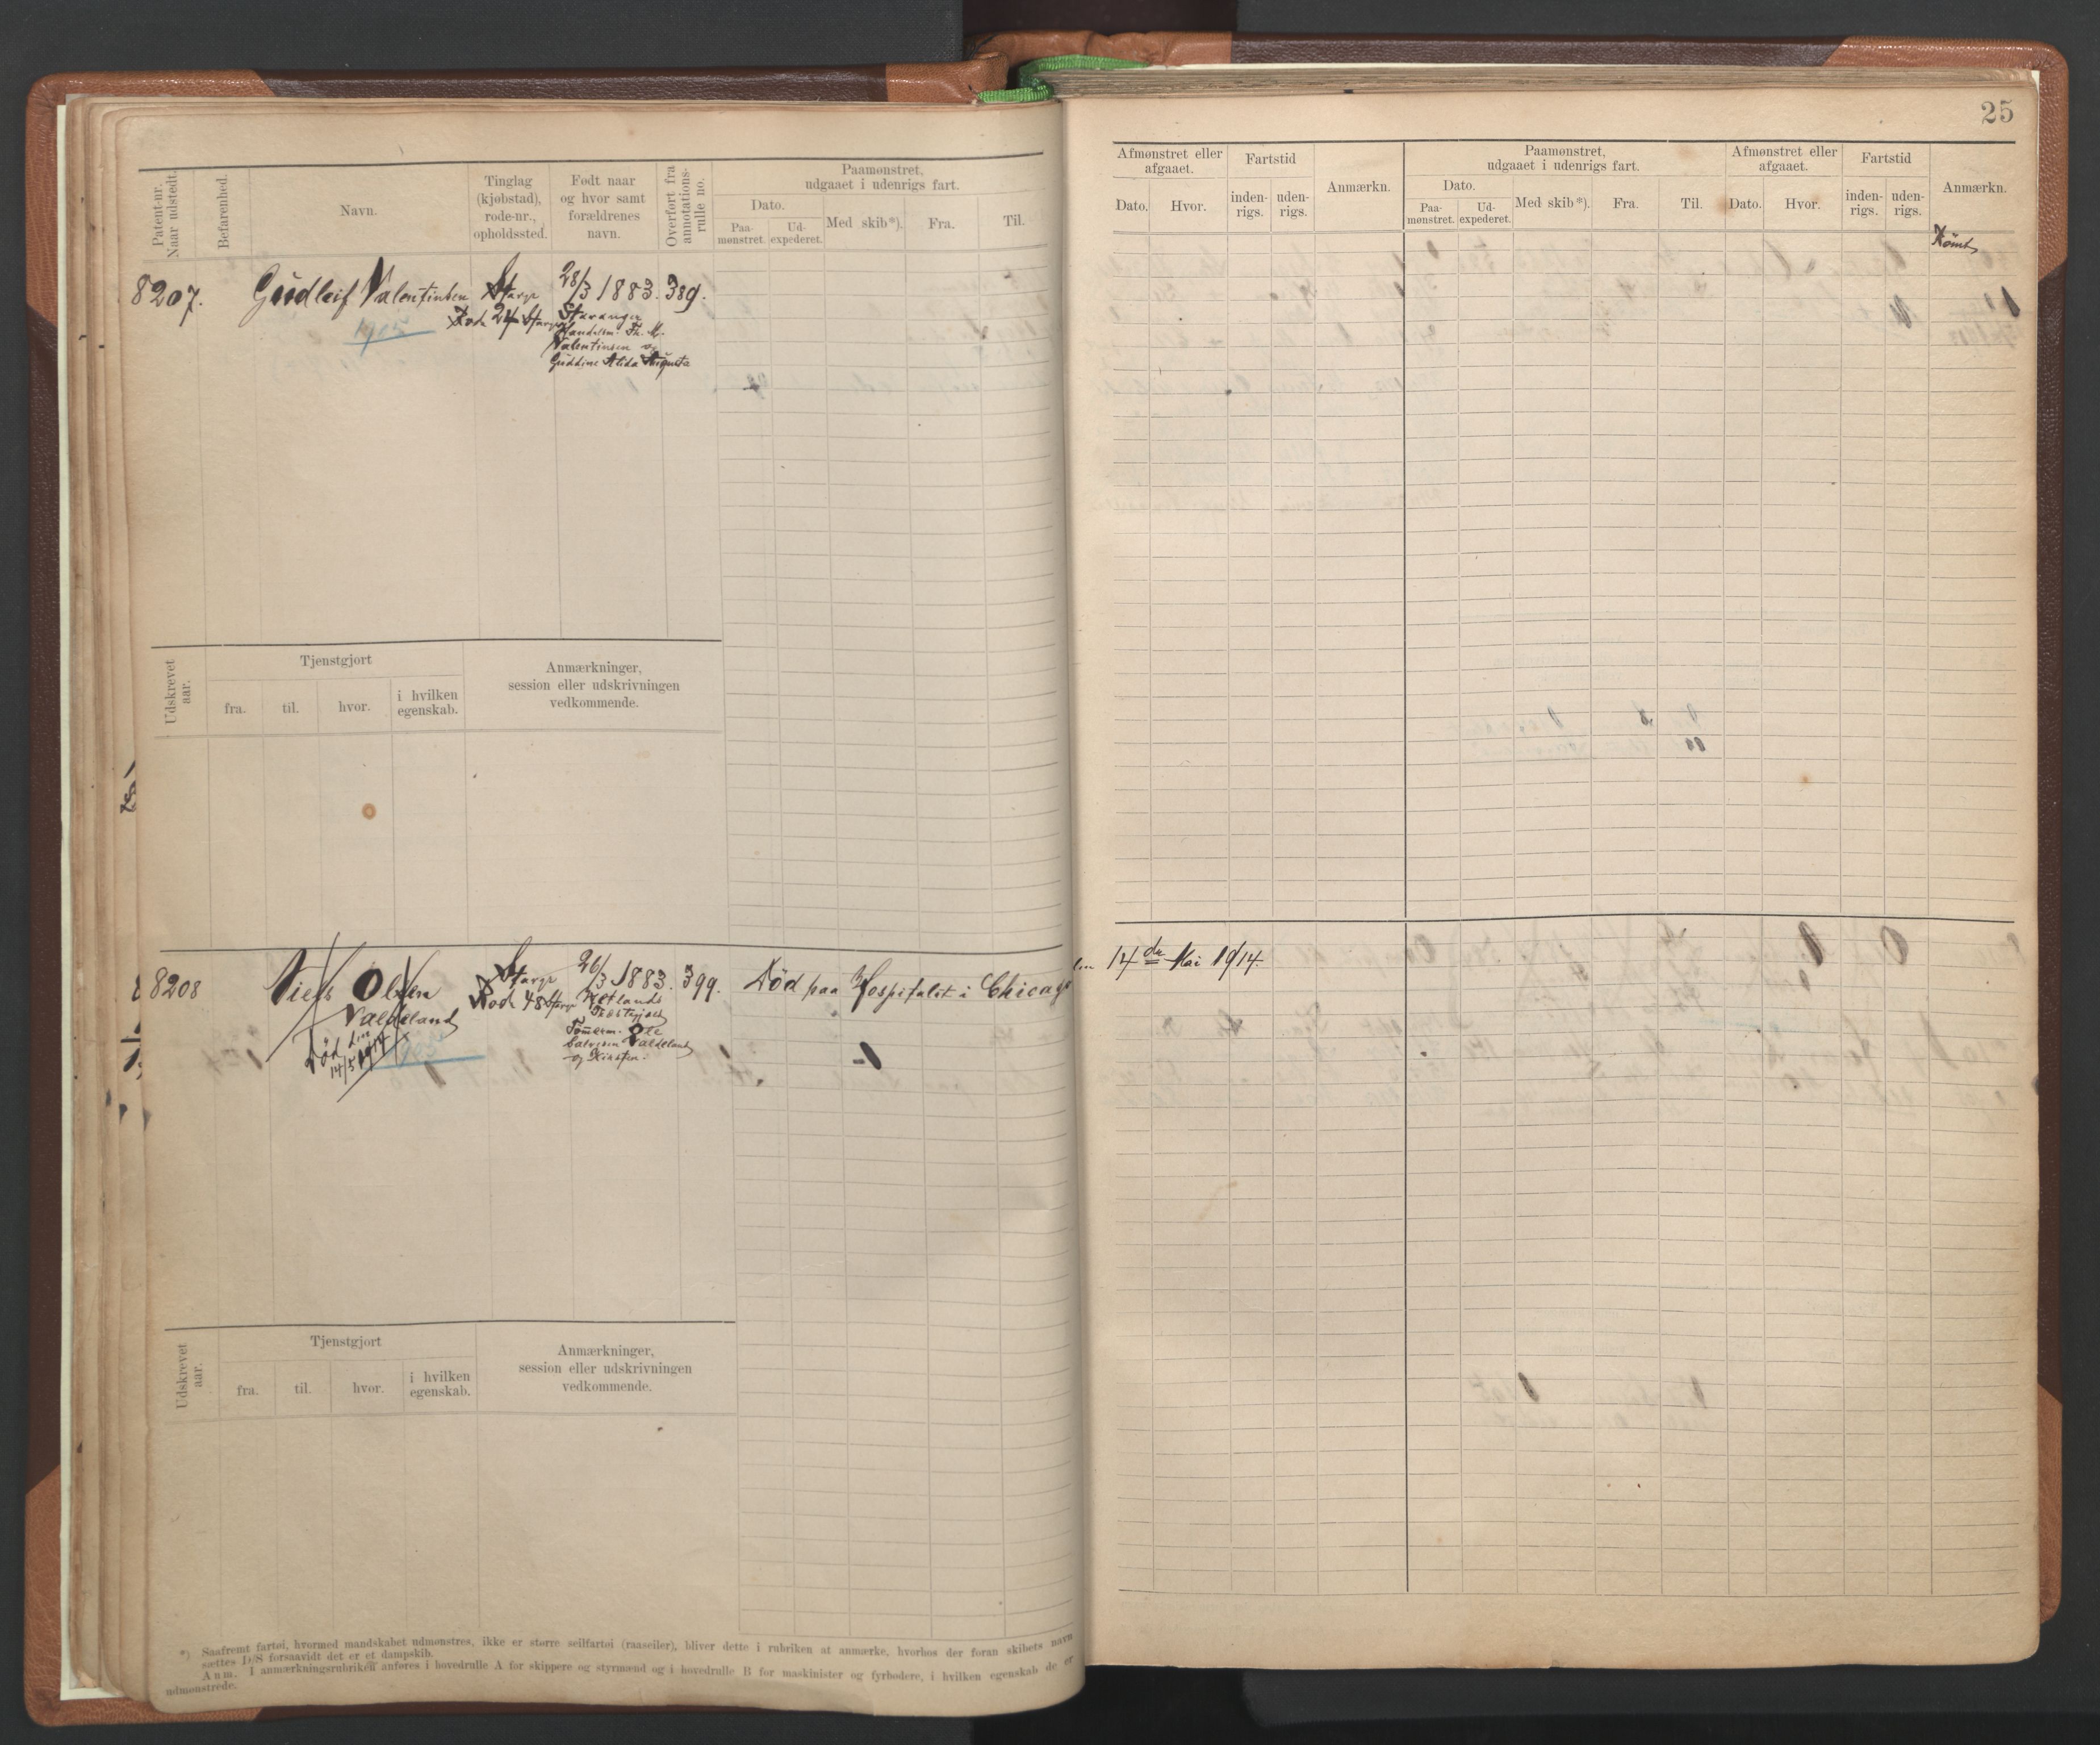 25
Patent-nr.
Naar udstedt.
Befarenhed.
Navn.
Tinglag
(kjøbstad),
rode-nr.,
opholdssted.
Født naar
og hvor samt
forældrenes
navn.
Overført fra
annotations-
rulle no.
Paamønstret,
udgaaet i udenrigs fart.
Dato.
Paa-
mønstret.
Ud-
expederet.
Med skib*).
Fra.
Til.
Afmønstret eller
afgaaet.
Dato.
Hvor.
Fartstid
inden-
rigs.
uden-
rigs.
Anmærkn.
Paamønstret,
udgaaet i udenrigs fart.
Dato.
Paa-
mønstret.
Ud-
expederet.
Med skib*).
Fra.
Til.
Afmønstret eller
afgaaet.
Dato.
Hvor.
Fartstid
inden-
rigs.
uden-
rigs.
Anmærkn.
8207.
Gudleif Valentinsen
1905
Stavgr
Rode 24 Stavgr
28/3 1883.
Stavanger
Handelsm. Th. M.
Valentinsen og
Guddine Alida Augusta
389.
Udskrevet
aar.
Tjenstgjort
fra.
til.
hvor.
i hvilken
egenskab.
Anmærkninger,
session eller udskrivningen
vedkommende.
8208
Niels Olsen
Valdeland
Død den
14/5 1914
1905
Stavgr
Rode 48 Stavgr
26/3 1883.
Hetlands
Tømerm. Ole
Salvesen Valdeland
og Kirsten.
399.
Død paa Hospitalet i Chicago
den 14de Mai 1914.
Udskrevet
aar.
Tjenstgjort
fra.
til.
hvor.
i hvilken
egenskab.
Anmærkninger,
session eller udskrivningen
vedkommende.
*) Saafremt fartøi, hvormed mandskabet udmønstres, ikke er større seilfartøi (raaseiler), bliver dette i rubriken at anmærke, hvorhos der foran skibets navn
sættes D/S forsaavidt det er et dampskib.
Anm. I anmærkningsrubriken anføres i hovedrulle A for skippere og styrmænd og i hovedrulle B for maskinister og fyrbødere, i hvilken egenskab de er
udmønstrede.